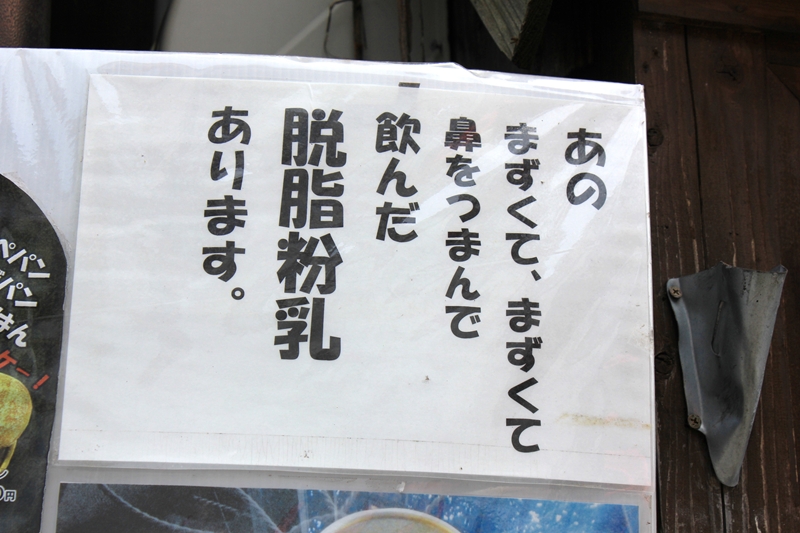 あの
まずくて、まずくて
鼻をつまんで
飲んだ
脱脂粉乳
あります。
ペパン
パン
きん
ケー！
0円